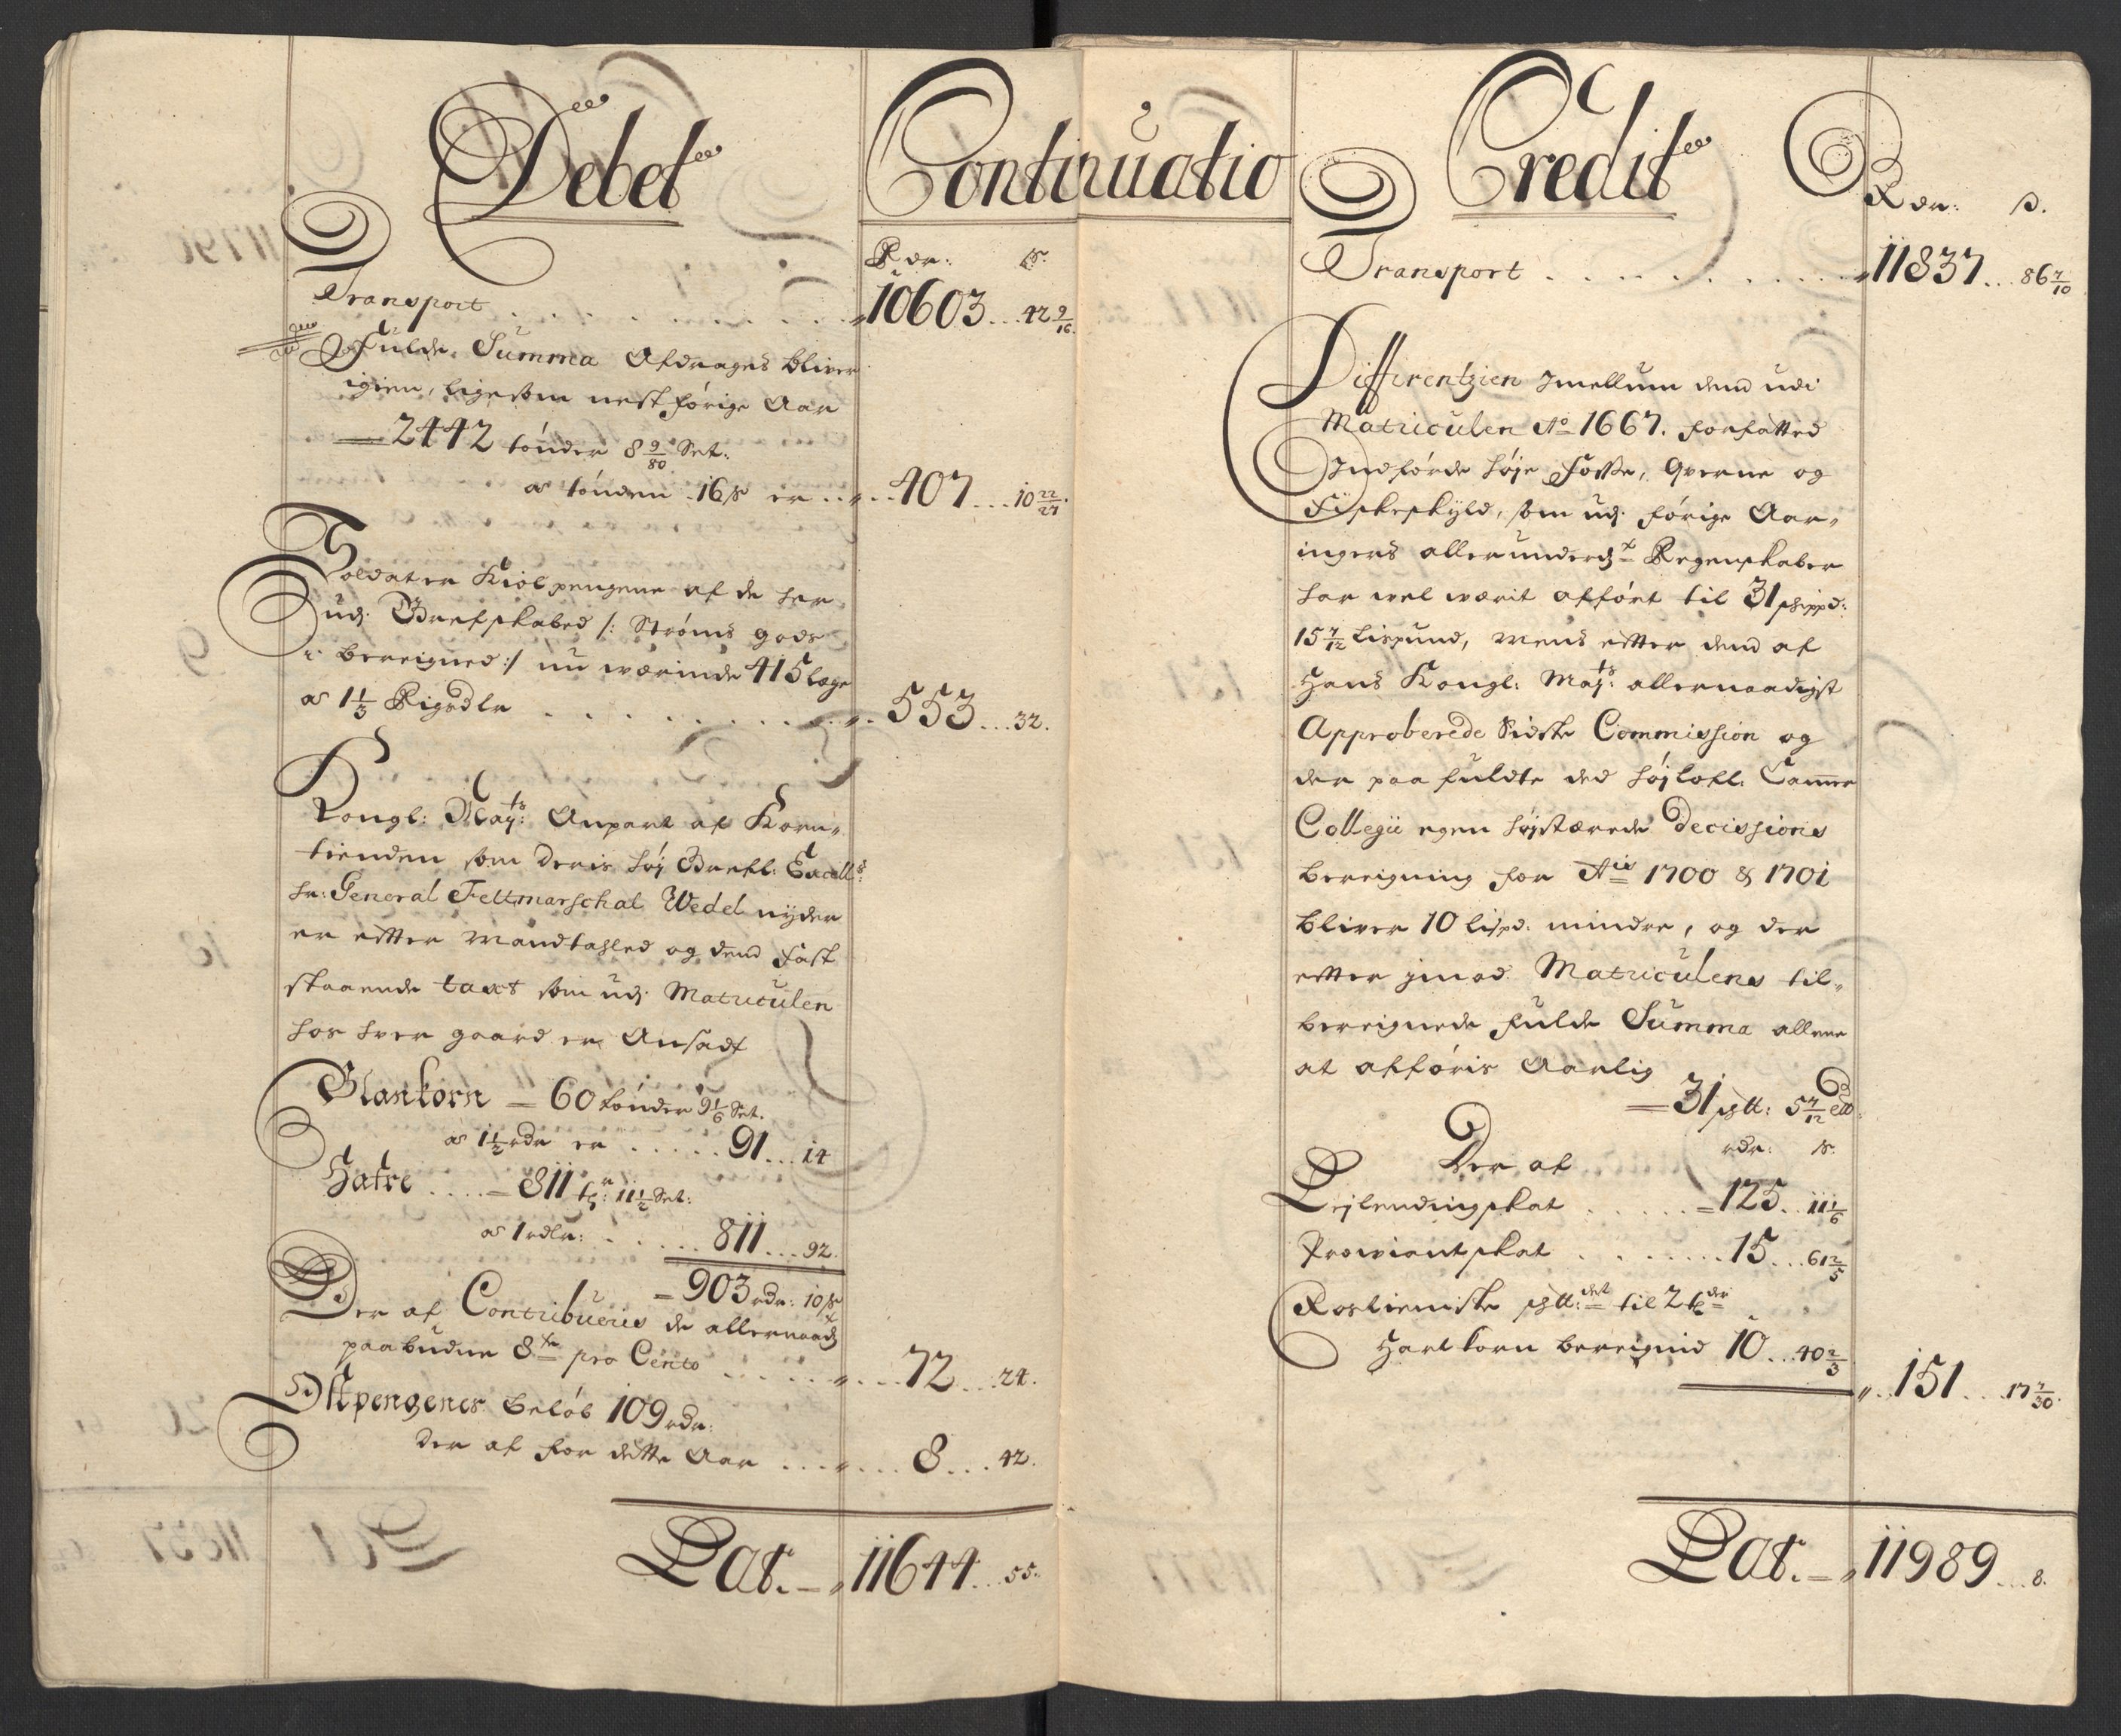 Debet
Continuatio
Rdr: ß.
Transport . . . . . . . . . . „10603 . . 42 9/16.
Fulde Summa Afdrages bliver
igien, ligesom nest forige Aar
— 2442 tønder 8 9/80 Set:
a tønden 16 ß er . . „ . . 407 . . . 10 22/27.
Soldater Kiolpengene af de her
udj Grefskabed /: Strøms gods
i: bereigned :/ nu wærinde 415 læge
a 1 1/3 Rigsdlr . . . . . . . . . „ . . 553 . . . 32.
Kongl: Maytz: Anpart af Korn„
tienden som deris Høj Grefl: Excells:
Hr: General Feltmarschal Wedel nyder
er efter Mandtahled og dend fast
staaende taxt som udj Matriculen
hos hver gaard er Ansadt
Blankorn — 60 tønder 9 1/6 Set.
a 1 1/2 rdr er . . . . . 91 . . . 14
Hafre . . . . — 811 tr: 11 1/2 Set:
a 1 rdlr: . . . . . 811 . . . 92.
= 903 rdr: 10 ß
Der af Contribueris de allernaadt
paabudne 8te pro Cento . . . . . . „ . . . 72 . . . 24.
Ostpengenes beløb 109 rdr:
der af for dette Aar . . . . „ . . . 8 . . . 42.
Lat. — „ 11644 . . . 55.
Credit
Rdr: ß.
Transport . . . . . . . . . „11837 . . . 86 7/10
Differentzien Imellum dend udi
Matriculen Ao 1667. forfatted
Indførde høje Fosse, Qverne og
Fiskeskyld, som udj forige Aar„
ingers allerunderdt Regenskaber
har vel værit afført til 31 schippd:
15 7/12 Lispund, mens efter dend af
Hans Kongl: Mayts: allernaadigst
Approberede Sidste Commission og
der paa fuldte det højlofl. Cammer
Collegii egen højstærede Decissions
bereigning for Ais 1700 & 1701
bliver 10 lispd: mindre, og der
efter imod Matriculens til„
bereignede fulde Summa allene
at afføris Aarlig
— 31 schtt: 5 7/12 ett:
Der af rdr: ß.
Lejlendingskat . . . . . = 125 . . 11 1/6
Prowiantskat . . . . . . . 15 . . . 61 2/5
Rostieniste schtt: det til 2 tder
Hartkorn bereignid 10 . . . 40 2/3
„ . . 151 . . . 17 7/30.
Lat. — „ 11989 . . . 8.